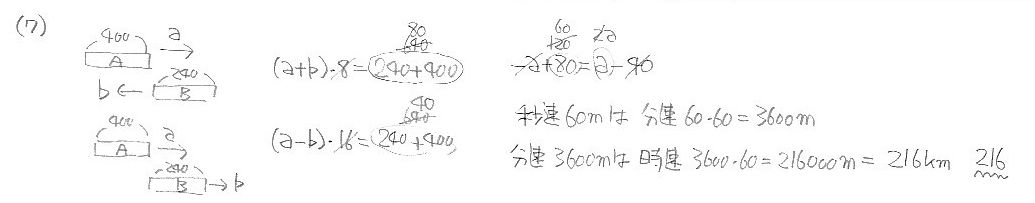 (7)
400 a
A
240
b ← B
400 a
A
240
B → b
80
640
(a+b)・8=240+400
40
640
(a-b)・16=240+400
60 2a
120
-a+80=a-40
秒速60mは 分速60・60=3600m
分速3600mは 時速3600・60=216000m=216km 216